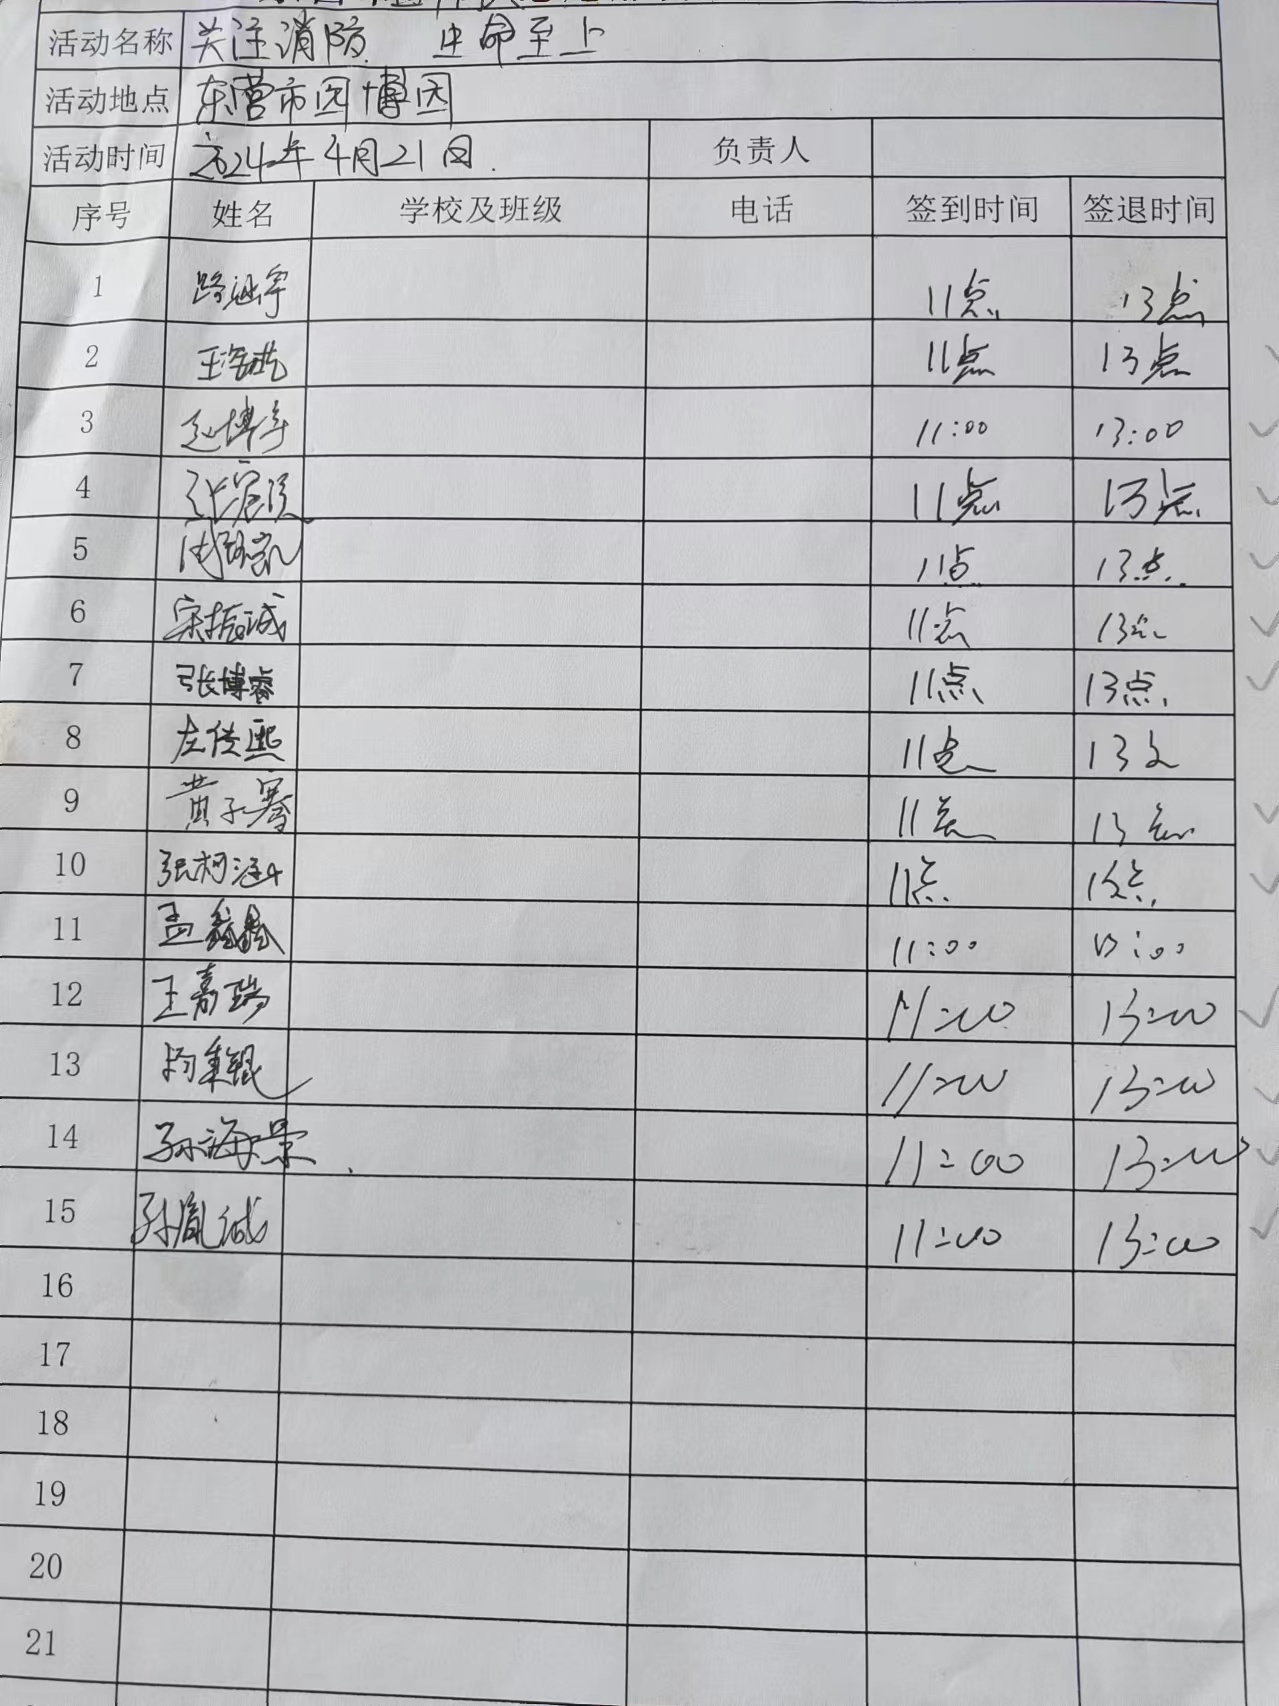 活动名称 关注消防 生命至上
活动地点 东营市园博园
活动时间 2024年4月21日. 负责人
序号 姓名 学校及班级 电话 签到时间 签退时间
1 路 宇 11点 13点
2 王浩 11点 13点
3 赵博宇 11:00 13:00
4 张宸 11点 13点
5 11点 13点
6 宋振诚 11点 13点
7 张博睿 11点 13点
8 左佳熙 11点 13
9 黄子骞 11点 13点
10 张柯涵 11点 13点
11 孟 11:00 13:00
12 王嘉瑞 11:00 13:00
13 11:00 13:00
14 孙海景 11:00 13:00
15 孙胤诚 11:00 13:00
16
17
18
19
20
21